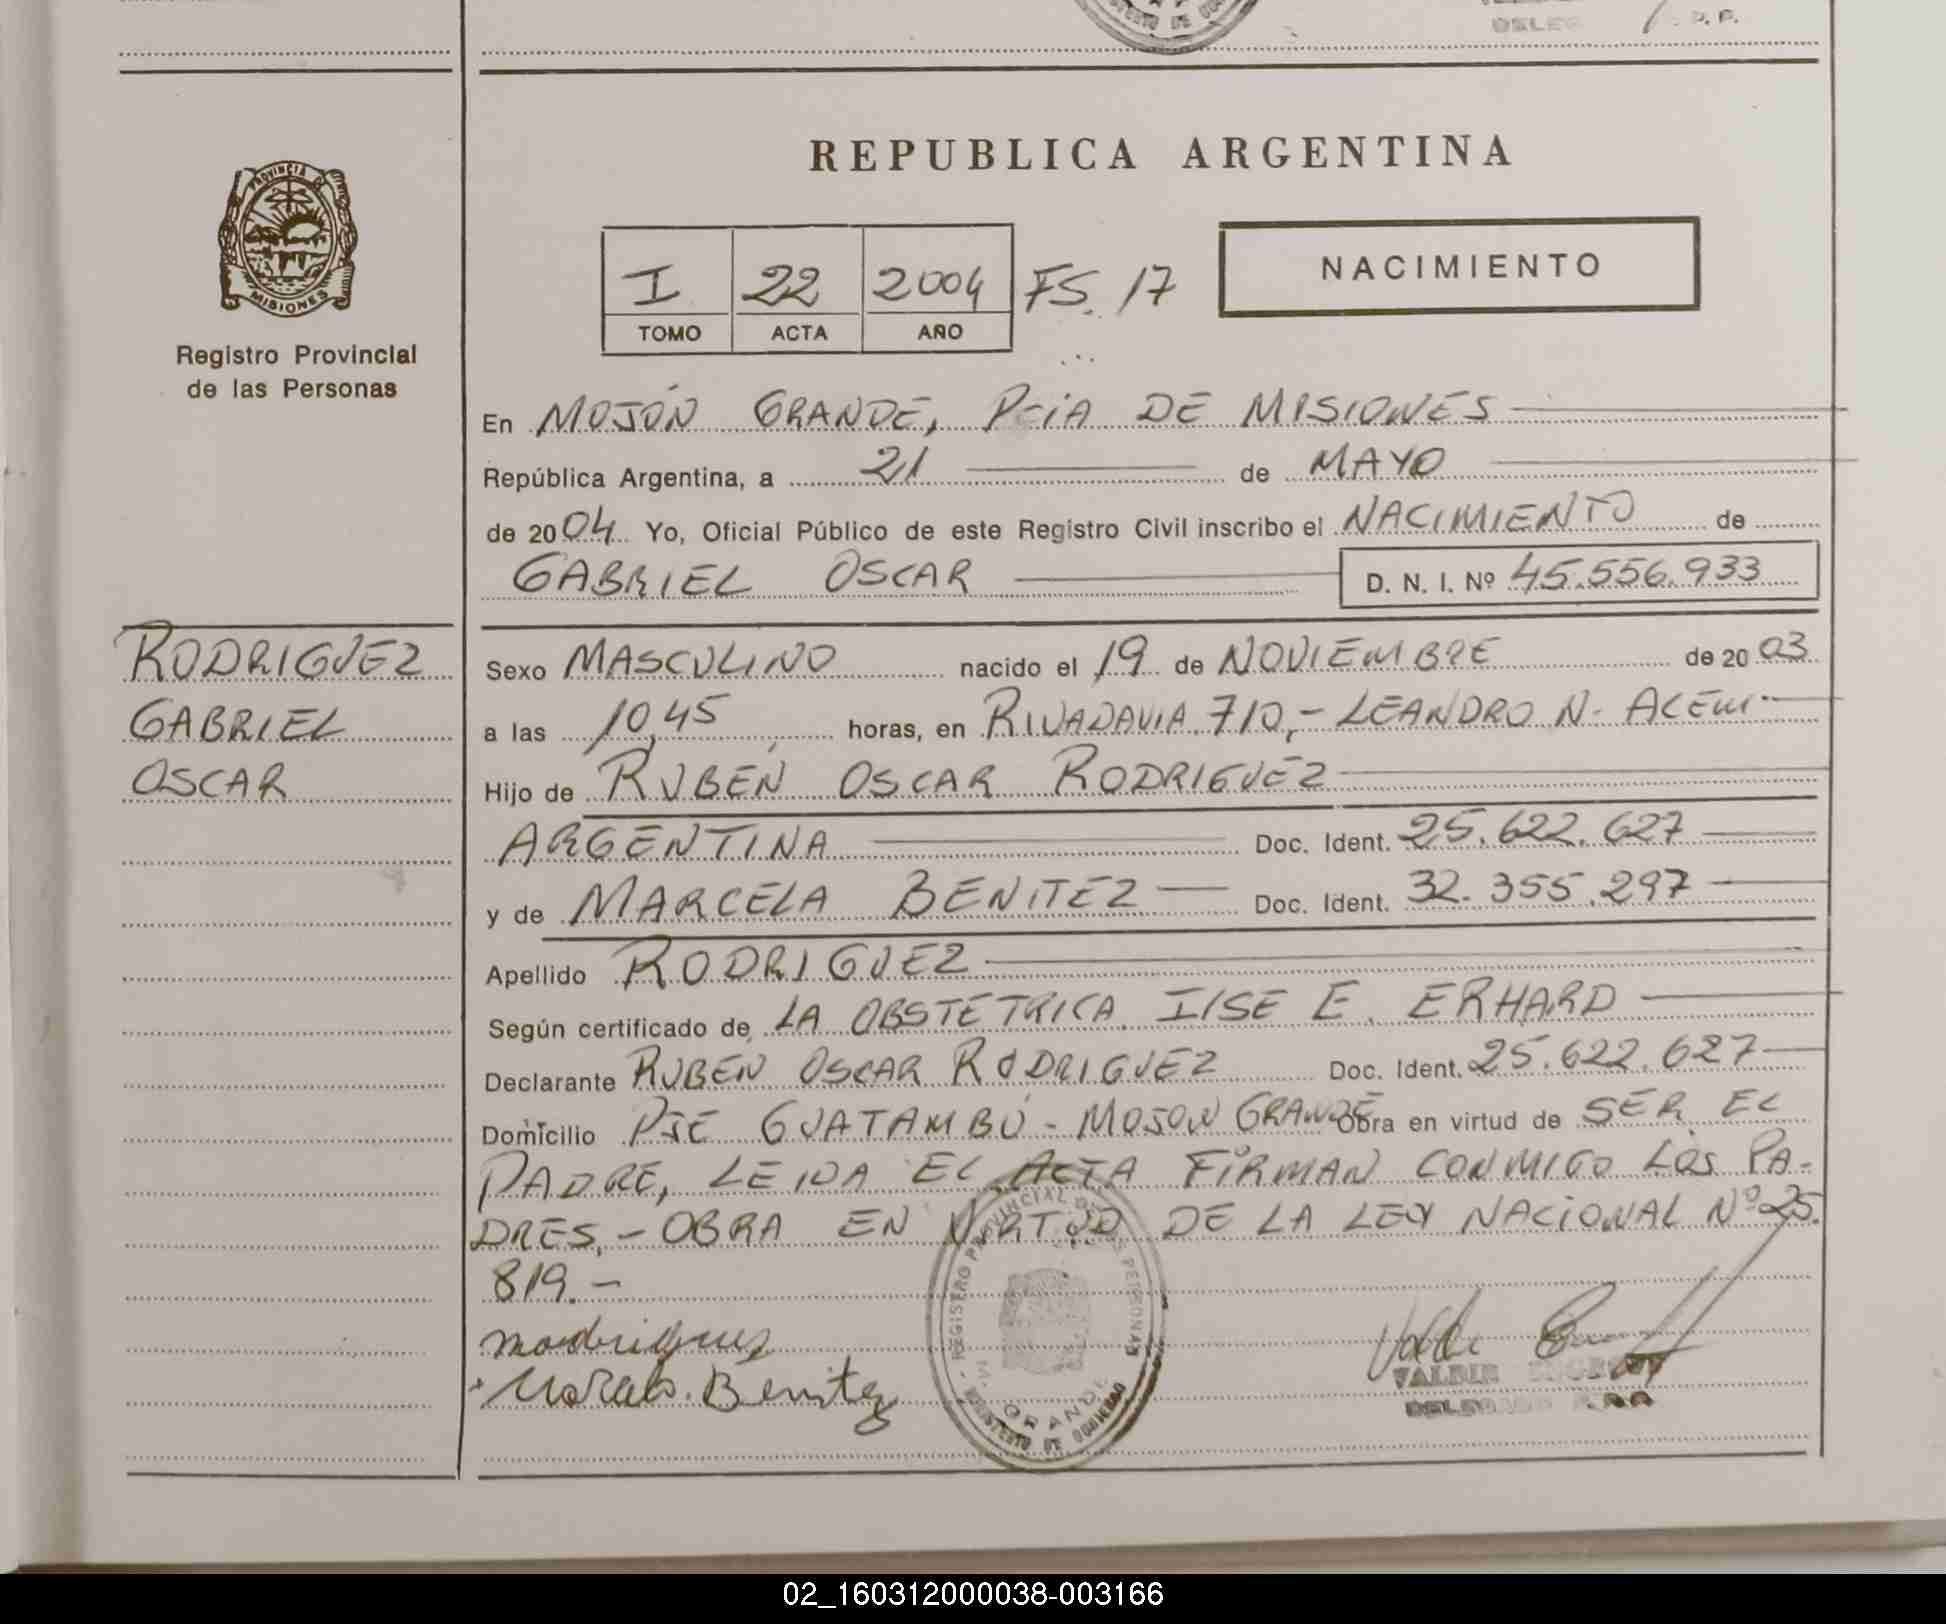 DELEG
REPUBLICA ARGENTINA
PROVINCIA DE
MISIONES
Registro Provincial
de las Personas
I 22 2004 FS. 17
TOMO ACTA AÑO
NACIMIENTO
En MOJÓN GRANDE, PCIA DE MISIONES
República Argentina, a 21 de MAYO
de 2004 Yo, Oficial Público de este Registro Civil inscribo el NACIMIENTO de
GABRIEL OSCAR D. N. I. Nº 45.556.933
RODRIGUEZ
GABRIEL
OSCAR
Sexo MASCULINO nacido el 19 de NOVIEMBRE de 2003
a las 10,45 horas, en RIVADAVIA 710,- LEANDRO N. ALEM
Hijo de RUBEN OSCAR RODRIGUEZ
ARGENTINA Doc. Ident. 25.622.627
y de MARCELA BENITEZ Doc. Ident. 32.355.297
Apellido RODRIGUEZ
Según certificado de LA OBSTETRICA ILSE E. ERHARD
Declarante RUBEN OSCAR RODRIGUEZ Doc. Ident. 25.622.627
Domicilio PJE GUATAMBÚ - MOJON GRANDE Obra en virtud de SER EL
PADRE, LEIDA EL ACTA FIRMAN CONMIGO LOS PA-
DRES,- OBRA EN VIRTUD DE LA LEY NACIONAL Nº 25.
819.-
REGISTRO PROVINCIAL DE LAS PERSONAS
GRANDE
MINISTERIO DE GOBIERNO
Benitez
VALDIR
02_160312000038-003166